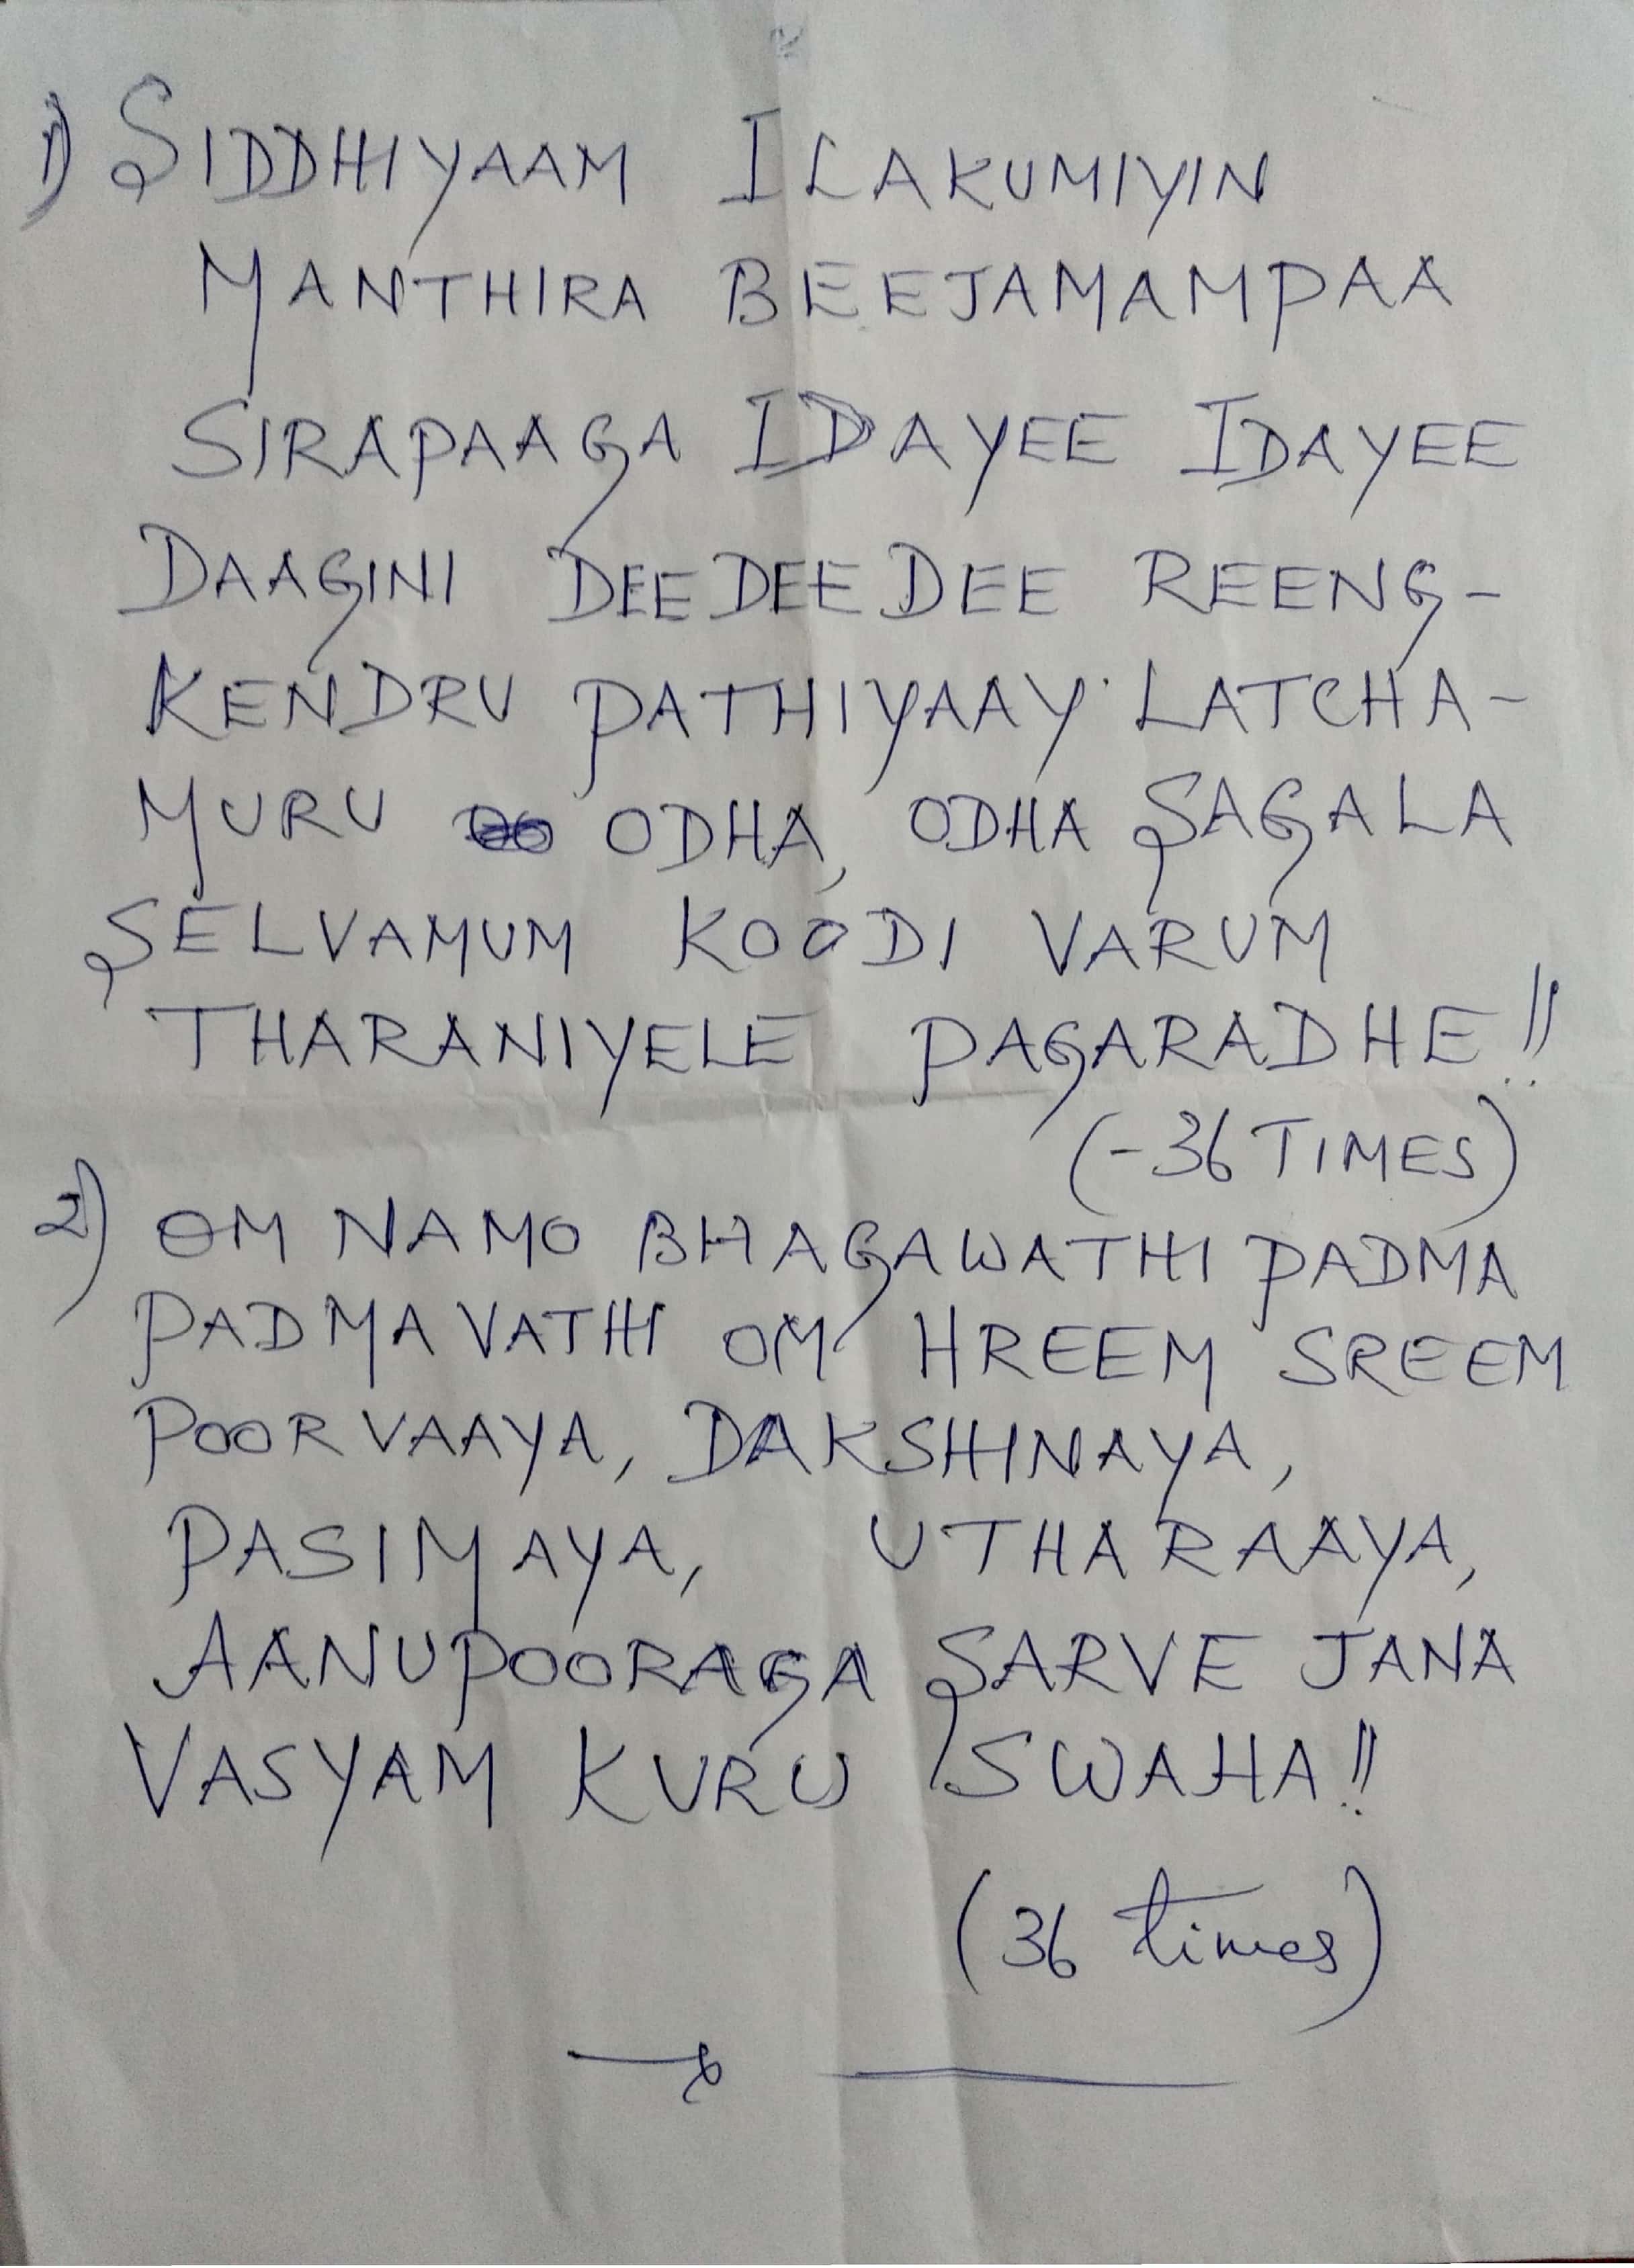 1) SIDDHIYAAM ILAKUMIYIN
MANTHIRA BEEJAMAMPAA
SIRAPAAGA IDAYEE IDAYEE
DAAGINI DEEDEEDEE REENG-
KENDRU PATHIYAAY LATCHA-
MURU ODHA, ODHA SAGALA
SELVAMUM KOODI VARUM
THARANIYELE PAGARADHE!!
(-36 TIMES)
2) OM NAMO BHAGAWATHI PADMA
PADMAVATHI OM HREEM SREEM
POORVAAYA, DAKSHINAYA,
PASIMAYA, UTHARAAYA,
AANUPOORAGA SARVE JANA
VASYAM KURU SWAHA!!
(36 times)